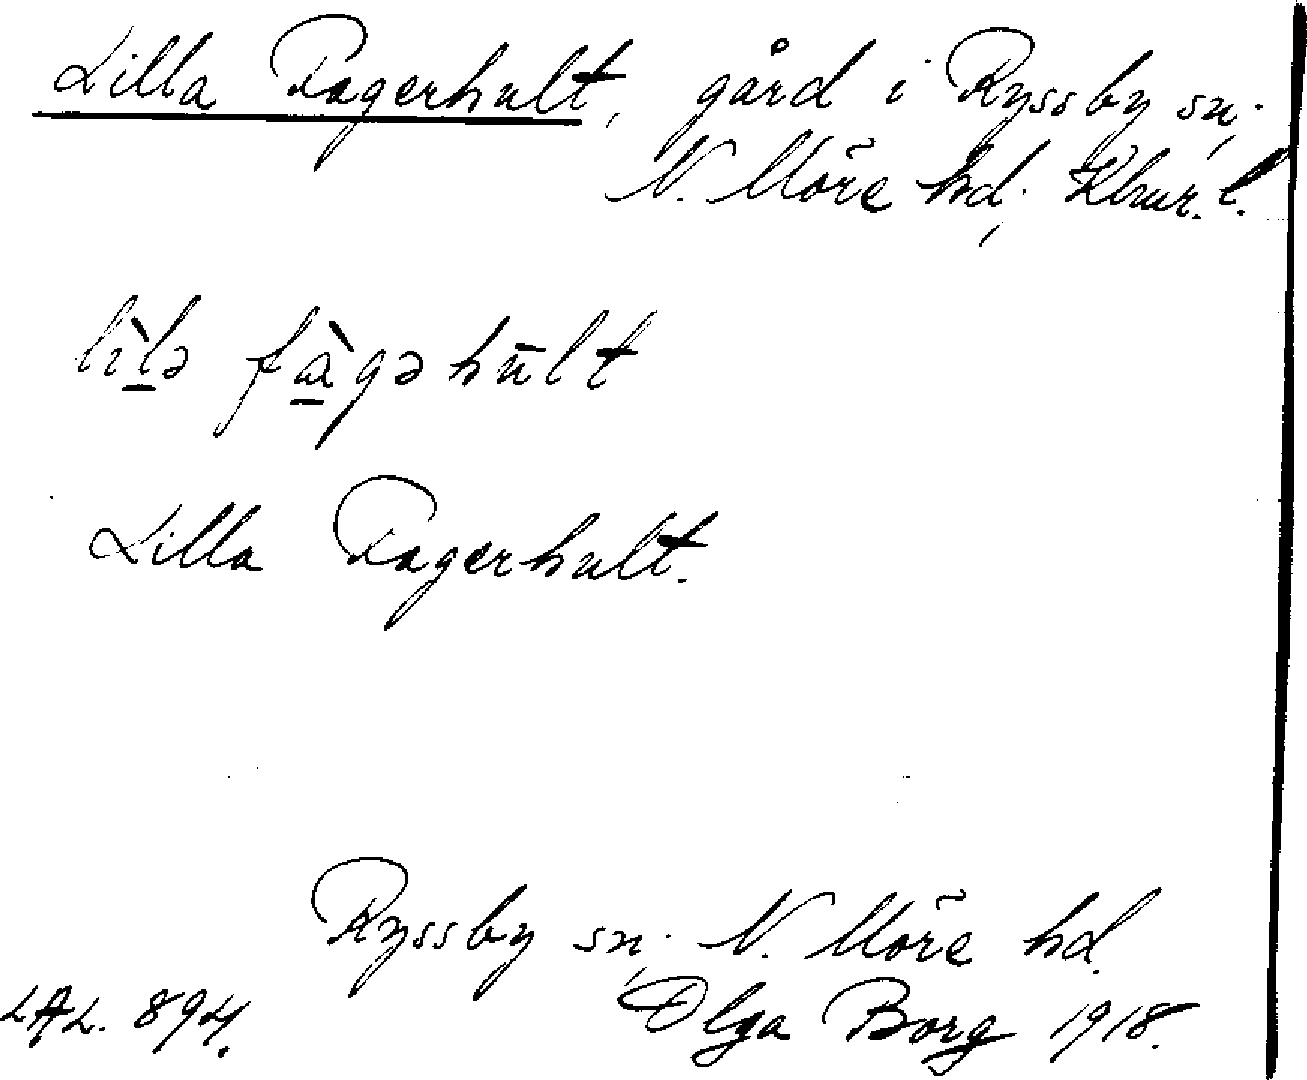 Lilla Fagerhult, gård i Ryssby sn;
N. Möre hd; Klmr. l.
lìlə fàgəhūlt
Lilla Fagerhult.
Ryssby sn; N. Möre hd.
LAL. 894. Olga Borg 1918.